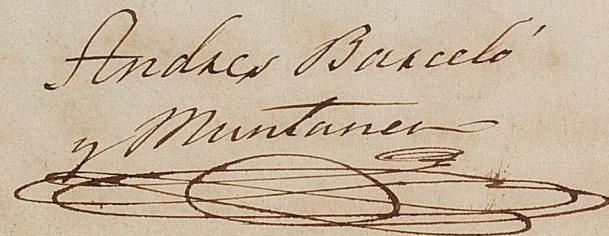 Andres Barceló
y Muntaner